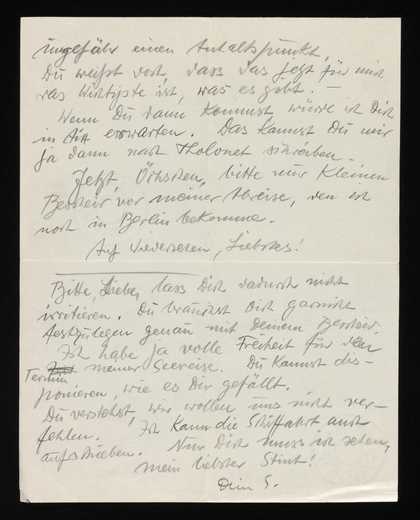 ungefähr einen Anhaltspunkt,
Du weißt doch, dass das jetzt für mich
das Wichtigste ist, was es gibt. —
Wenn Du dann kommst, würde ich Dich
in Aix erwarten. Das kannst Du mir
ja dann nach Tholonet schreiben.
Jetzt, bitte nur kleinen
Bescheid vor meiner Abreise, den ich
noch in Berlin bekomme.
Auf Wiedersehen, Liebstes!
Bitte, Liebes, lass Dich dadurch nicht
irritieren. Du brauchst Dich garnicht
festzulegen genau mit Deinem Bescheid.
Ich habe ja volle Freiheit für den
Termin meiner Seereise. Du kannst dis-
ponieren, wie es Dir gefällt.
Du verstehst, wir wollen uns nicht ver-
fehlen. Ich kann die Schiffahrt auch
aufschieben. Nur Dich muss ich sehen,
mein liebster Stint!
Dein S.